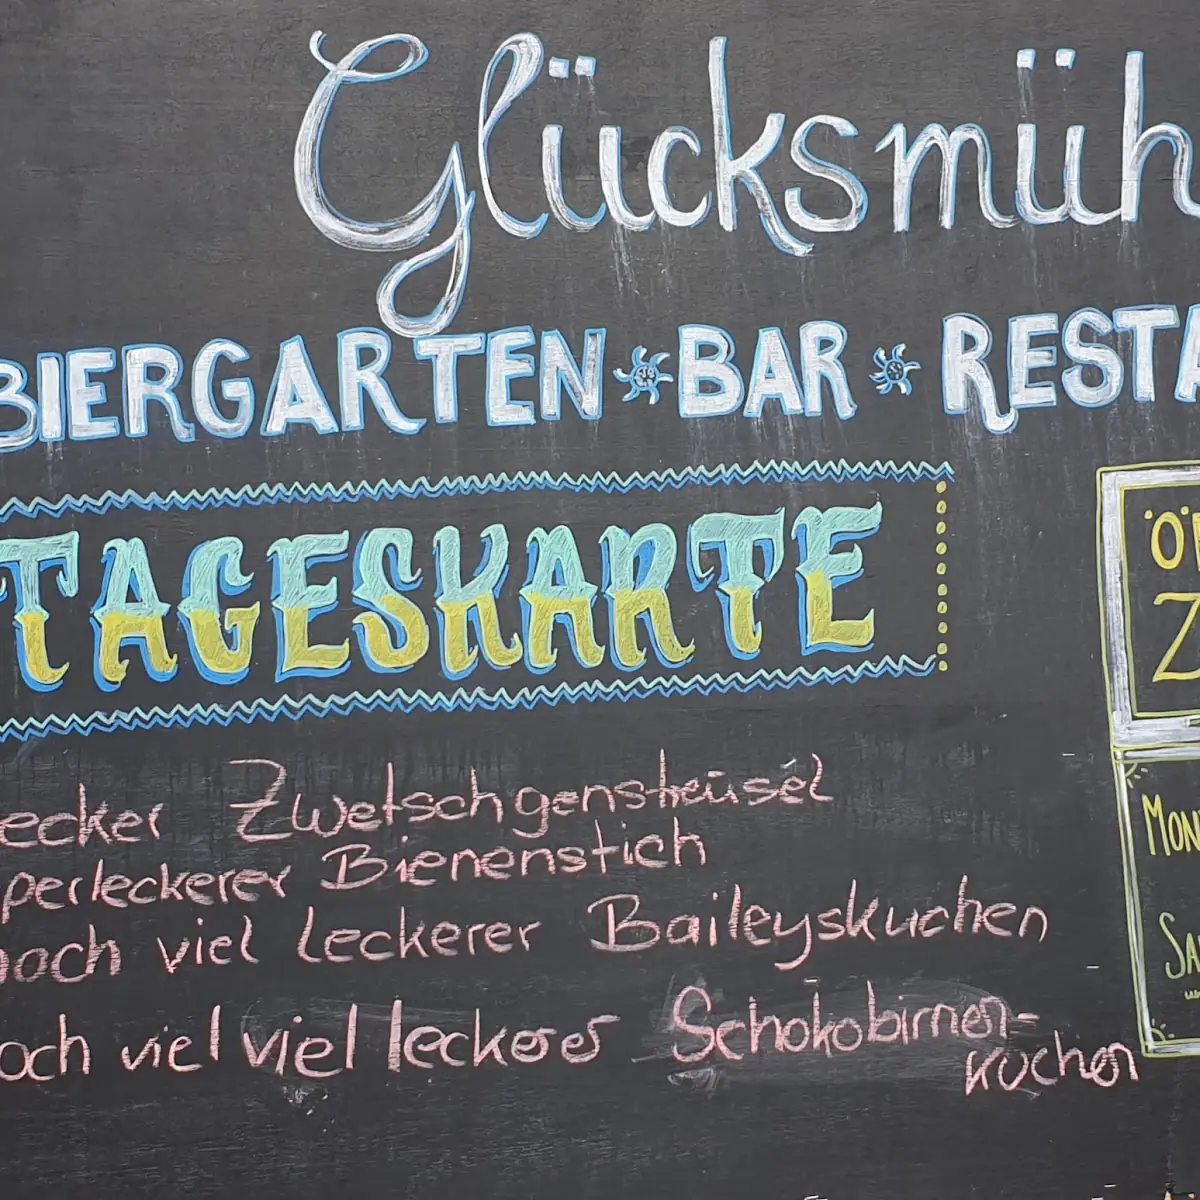 Glücksmüh
BIERGARTEN * BAR * RESTA
TAGESKARTE
ecker Zwetschgenstreusel
perleckerer Bienenstich
noch viel leckerer Baileyskuchen
och viel viel leckerer Schokobirnen-
kuchen
ÖF
Z
MON
SA